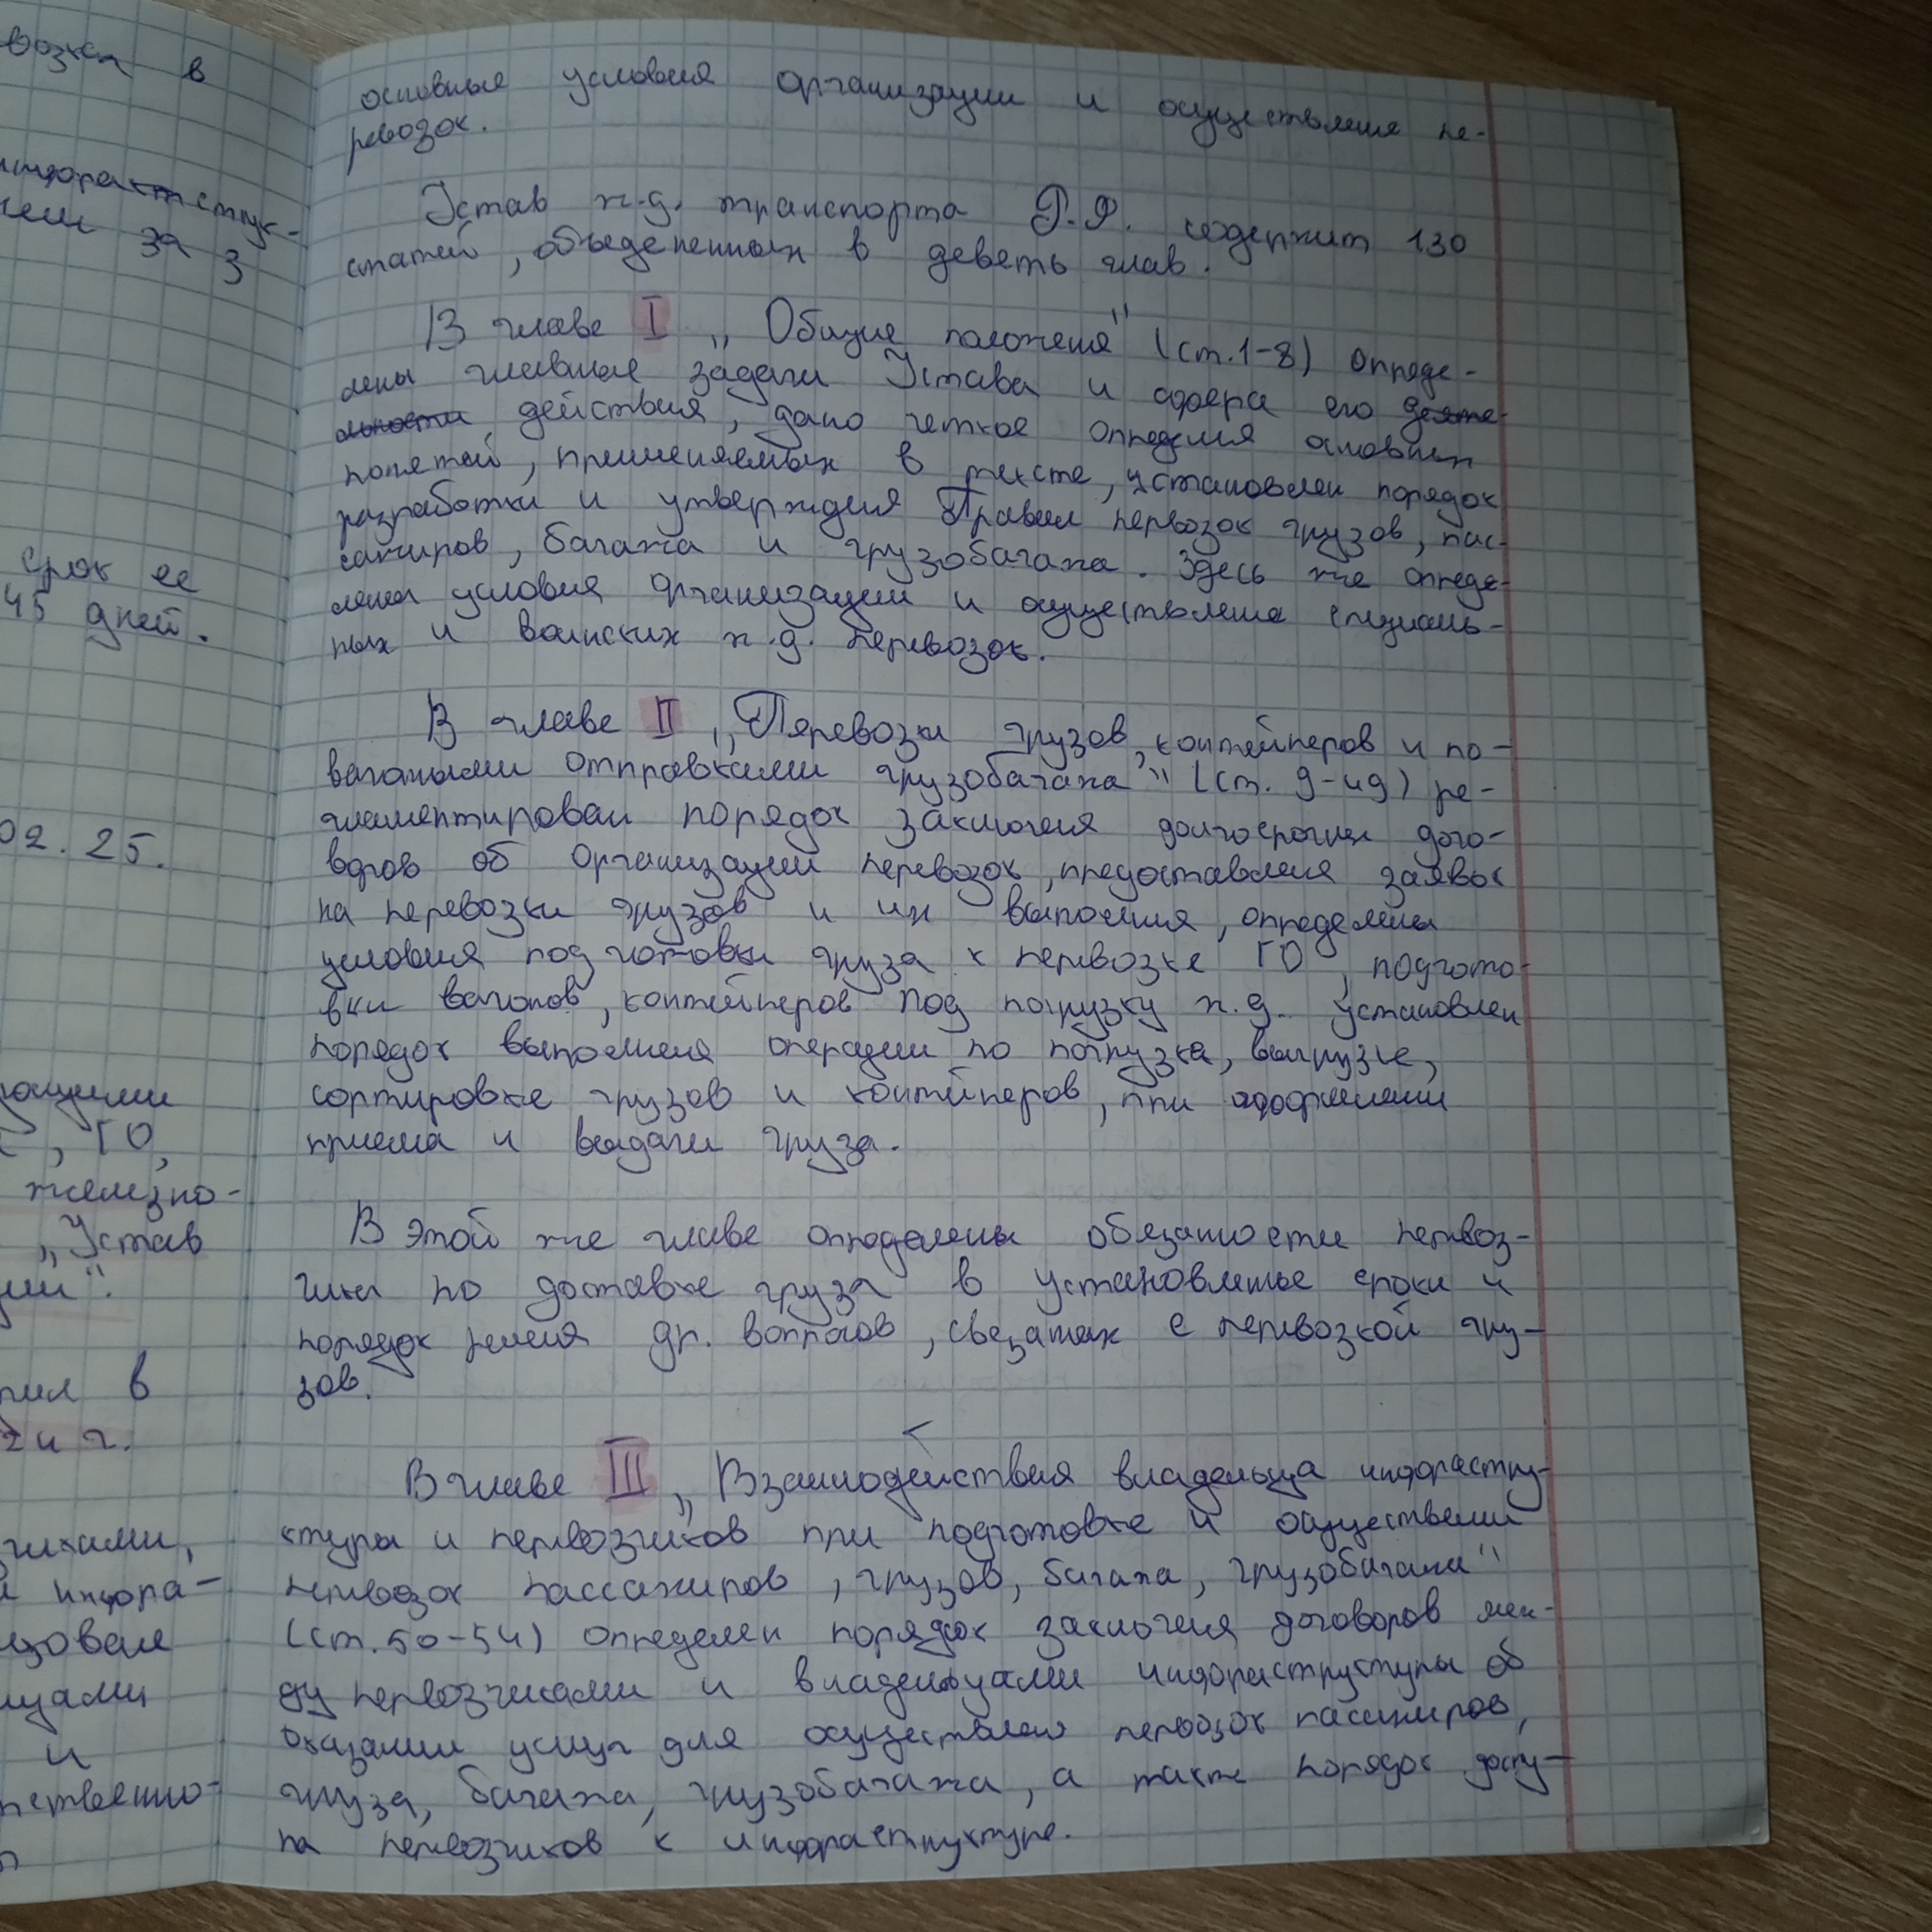 возка в
инфраструк-
ции за 3
срок ее
45 дней.
02.25.
ющими
, ГО,
железно-
„Устав
ции".
рил в
чиками,
и инфра-
ьзовал
ьцами
и
ественно-
основные условия организации и осуществления пе-
ревозок.
Устав ж.д. транспорта Р.Ф. содержит 130
статей, объеденённых в деветь глав.
В главе I „Общие положения" (ст.1-8) опреде-
лены главные задачи Устава и сфера его деяте-
льности действия, дано четкое определия основных
понятий, применяемых в тексте, установлен порядок
разработки и утверждия Правил первозок грузов, пас-
сажиров, багажа и грузобагажа. Здесь же опреде-
лены условия организации и осуществления специаль-
ных и воинских ж.д. перевозок.
В главе II „Перевозки грузов, контейнеров и по-
вагоными отправками грузобагажа" (ст. 9-49) ре-
гламентирован порядок заключения долгосрочных дого-
воров об организации перевозок, предоставления заявок
на перевозки грузов и их выполния, определены
условия подготовки груза к перевозке ГО, подгото-
вки вагонов, контейнеров под погрузку ж.д. установлен
порядок выполнения операции по погрузке, выгрузке,
сортировке грузов и контейнеров, при оформлении
приема и выдачи груза.
В этой же главе определены обязанности первоз-
чика по доставке груза в установленые сроки и
порядок решения др. вопросов, свезаных с перевозкой гру-
зов.
В главе III „Взаимодействия владельца инфрастру-
ктуры и первозчиков при подготовке и осуществлении
первозок пассажиров, грузов, багажа, грузобагажа"
(ст.50-54) определен порядок заключения договоров меж-
ду первозчиками и владельцами инфраструктуры об
оказании услуг для осуществления первозок пассажиров,
груза, багажа, грузобагажа, а также порядок досту-
па первозчиков к инфраструктуре.